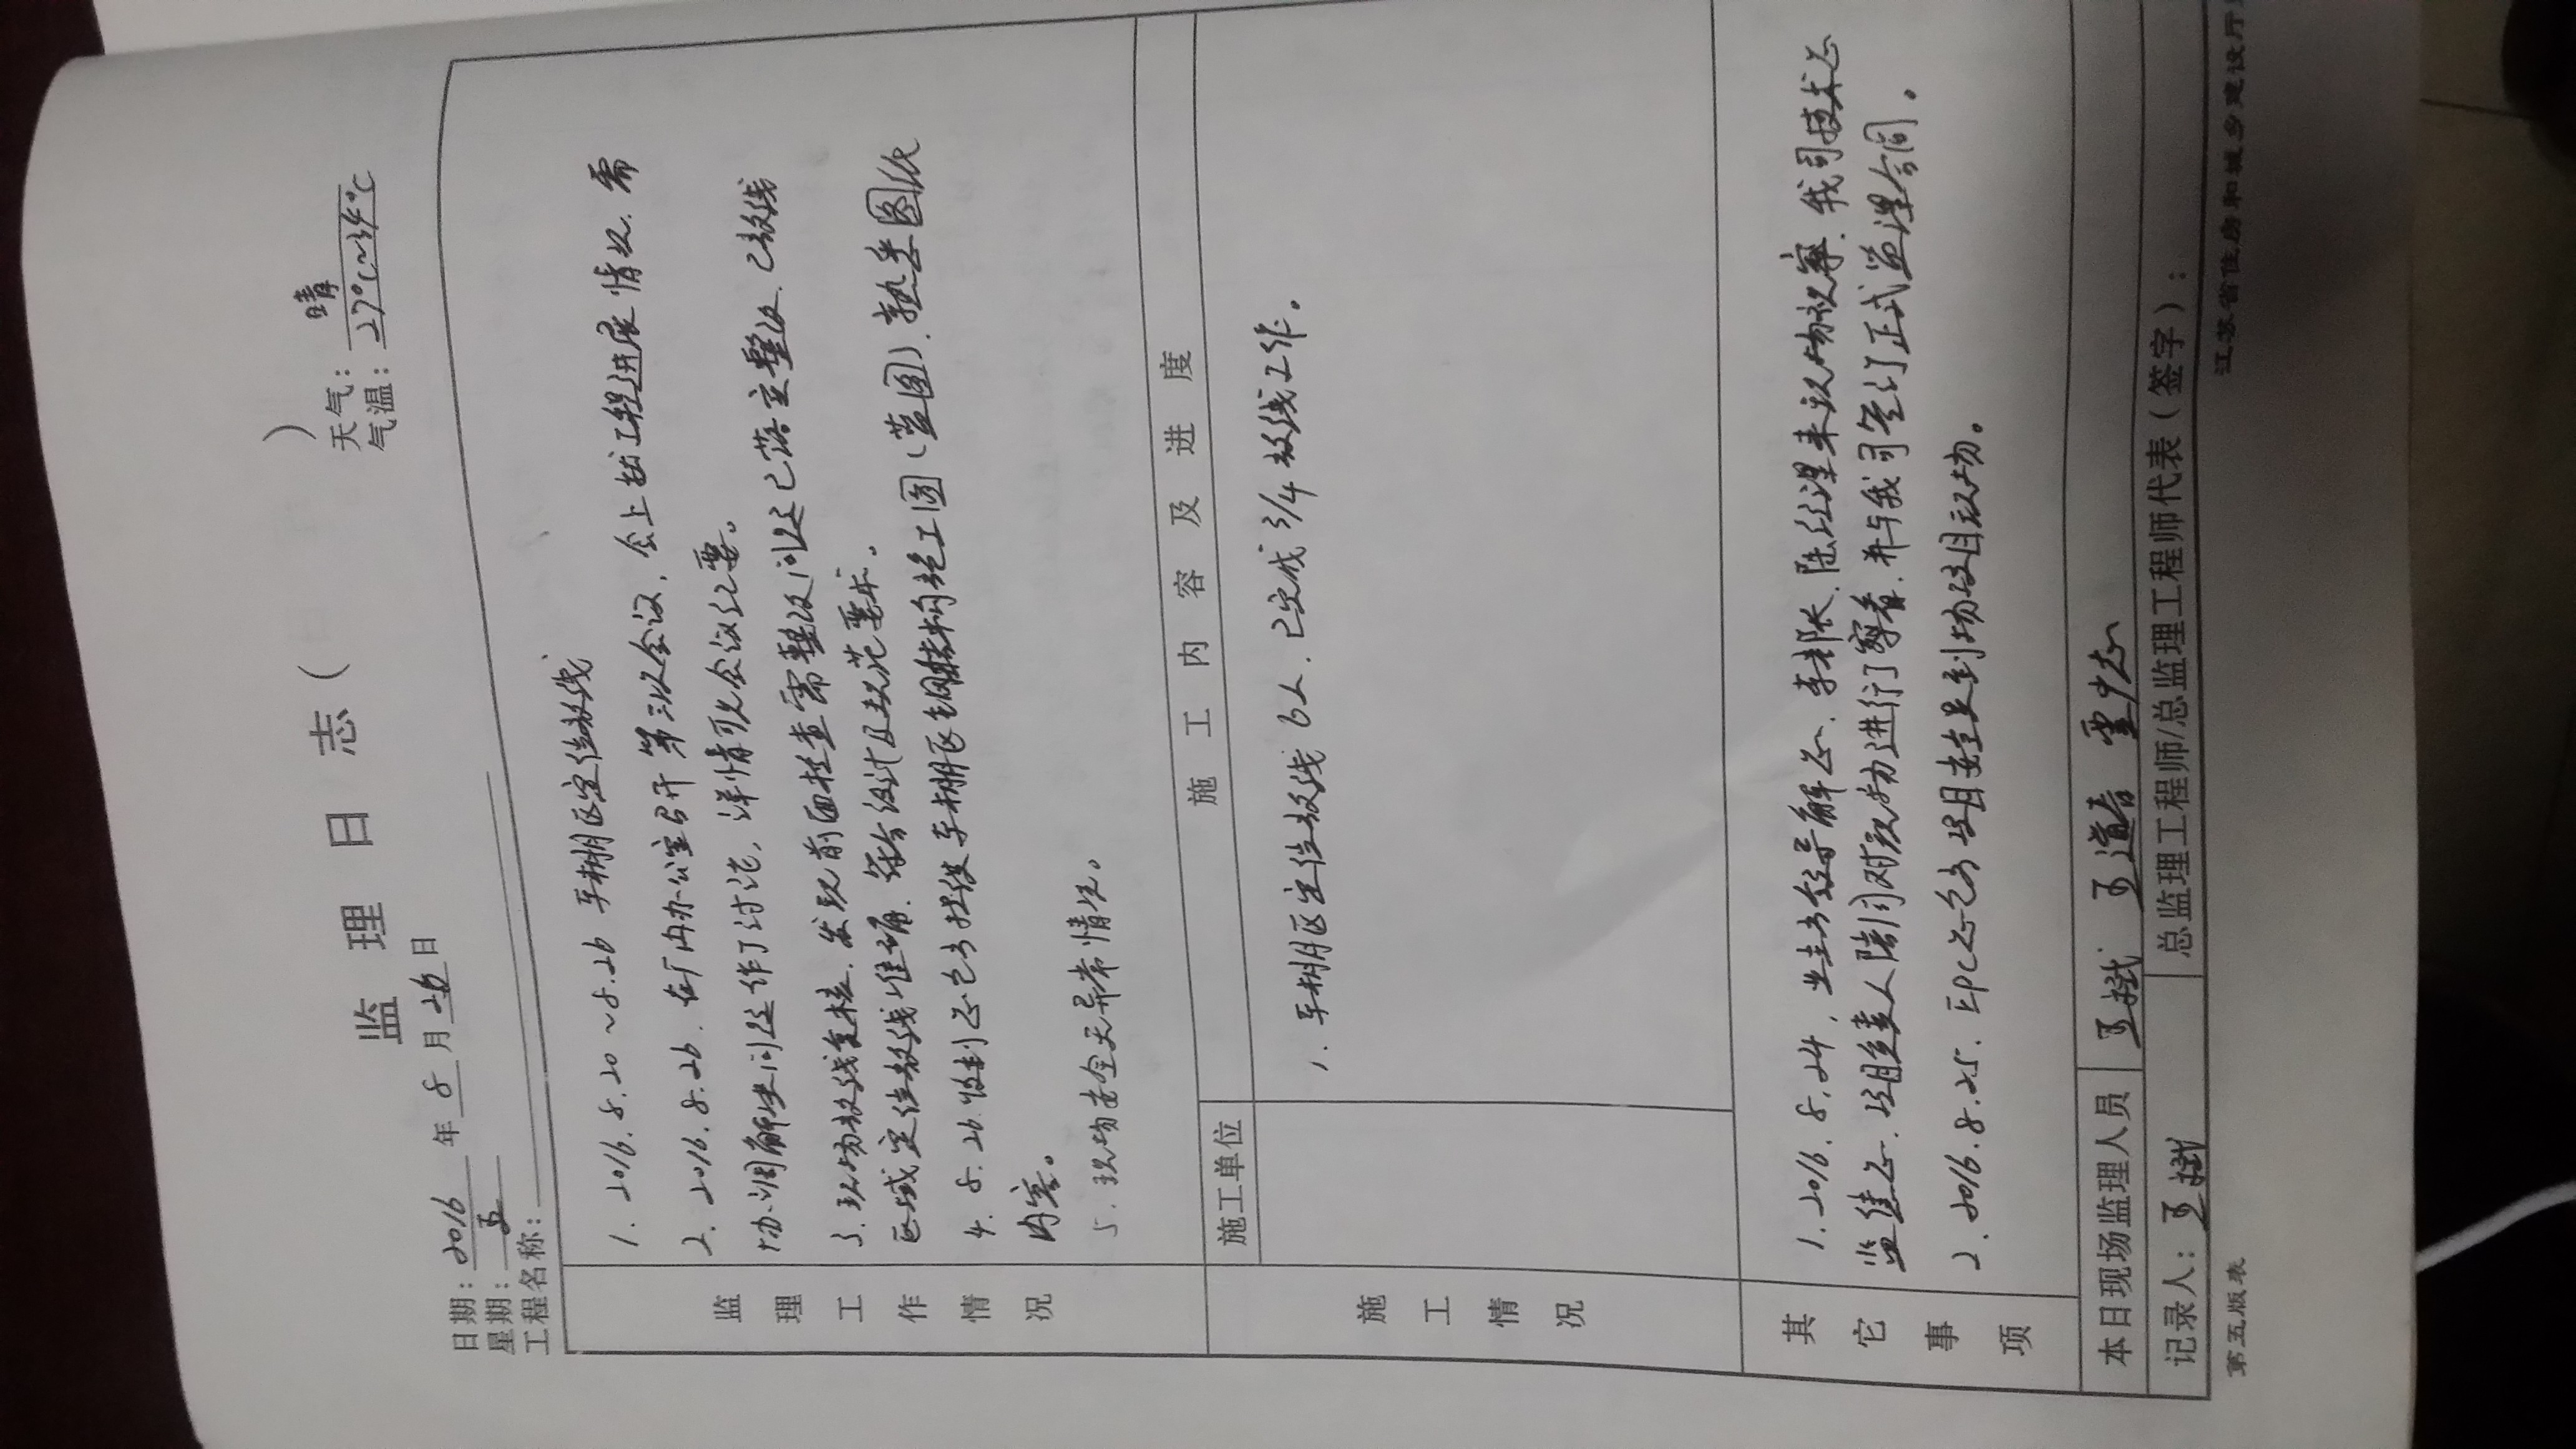 监 理 日 志 （ ）
日期：2016 年 8 月 26 日 天气：晴
星期：五 气温：27℃~34℃
工程名称：
监理工作情况
1. 2016.8.20~8.26 车棚区定位放线
2. 2016.8.26.在厂内办公室召开第三次会议，会上就工程进展情况、需
协调解决问题作了讨论，详情可见会议纪要。
3. 现场放线复核，发现前面检查需整改问题已落实整改，已放线
区域定位放线准确、符合设计及规范要求。
4. 8.26.收到总包提供车棚区钢结构施工图（蓝图），熟悉图纸
内容。
5. 现场安全无异常情况。
施工情况
施工单位 施 工 内 容 及 进 度
1. 车棚区定位放线6人，已完成3/4放线工作。
其它事项
1. 2016.8.24，业主方领导解总、李部长、陈经理来现场议事，我司技术总
监 总、项目负责人陪同对现场进行了察看，并与我司签订正式监理合同。
2. 2016.8.25. EPC总包方项目安全员到场项目现场。
本日现场监理人员 王斌 王道春
记录人：王斌 总监理工程师/总监理工程师代表（签字）：
第五版表 江苏省住房和城乡建设厅